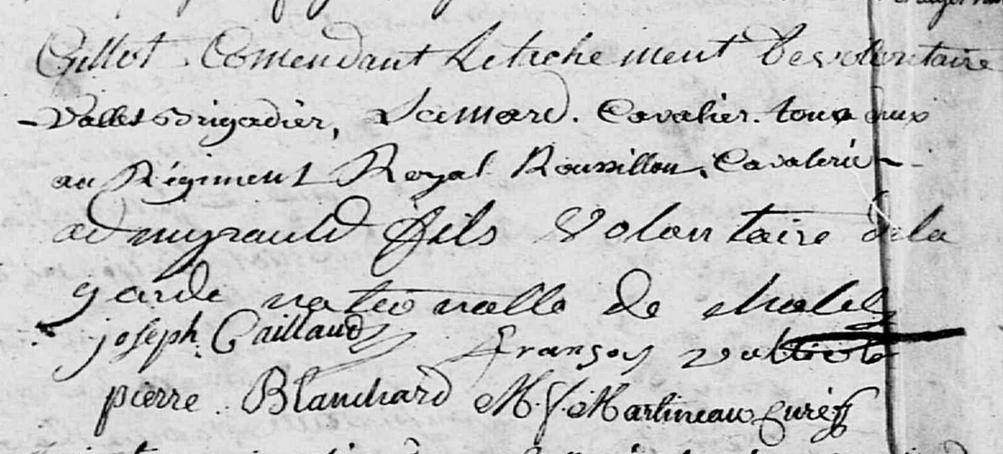 Gillot Comendant Letichement de volontaire
Vallet Brigadier, Semard. Cavalier. tous deux
au Régiment Royal Roussillon, Cavalerie
admyrauld fils Volontaire de la
garde nationalle de cholet
joseph Gaillaud
françoy
pierre Blanchard M. J. Martineau Curé